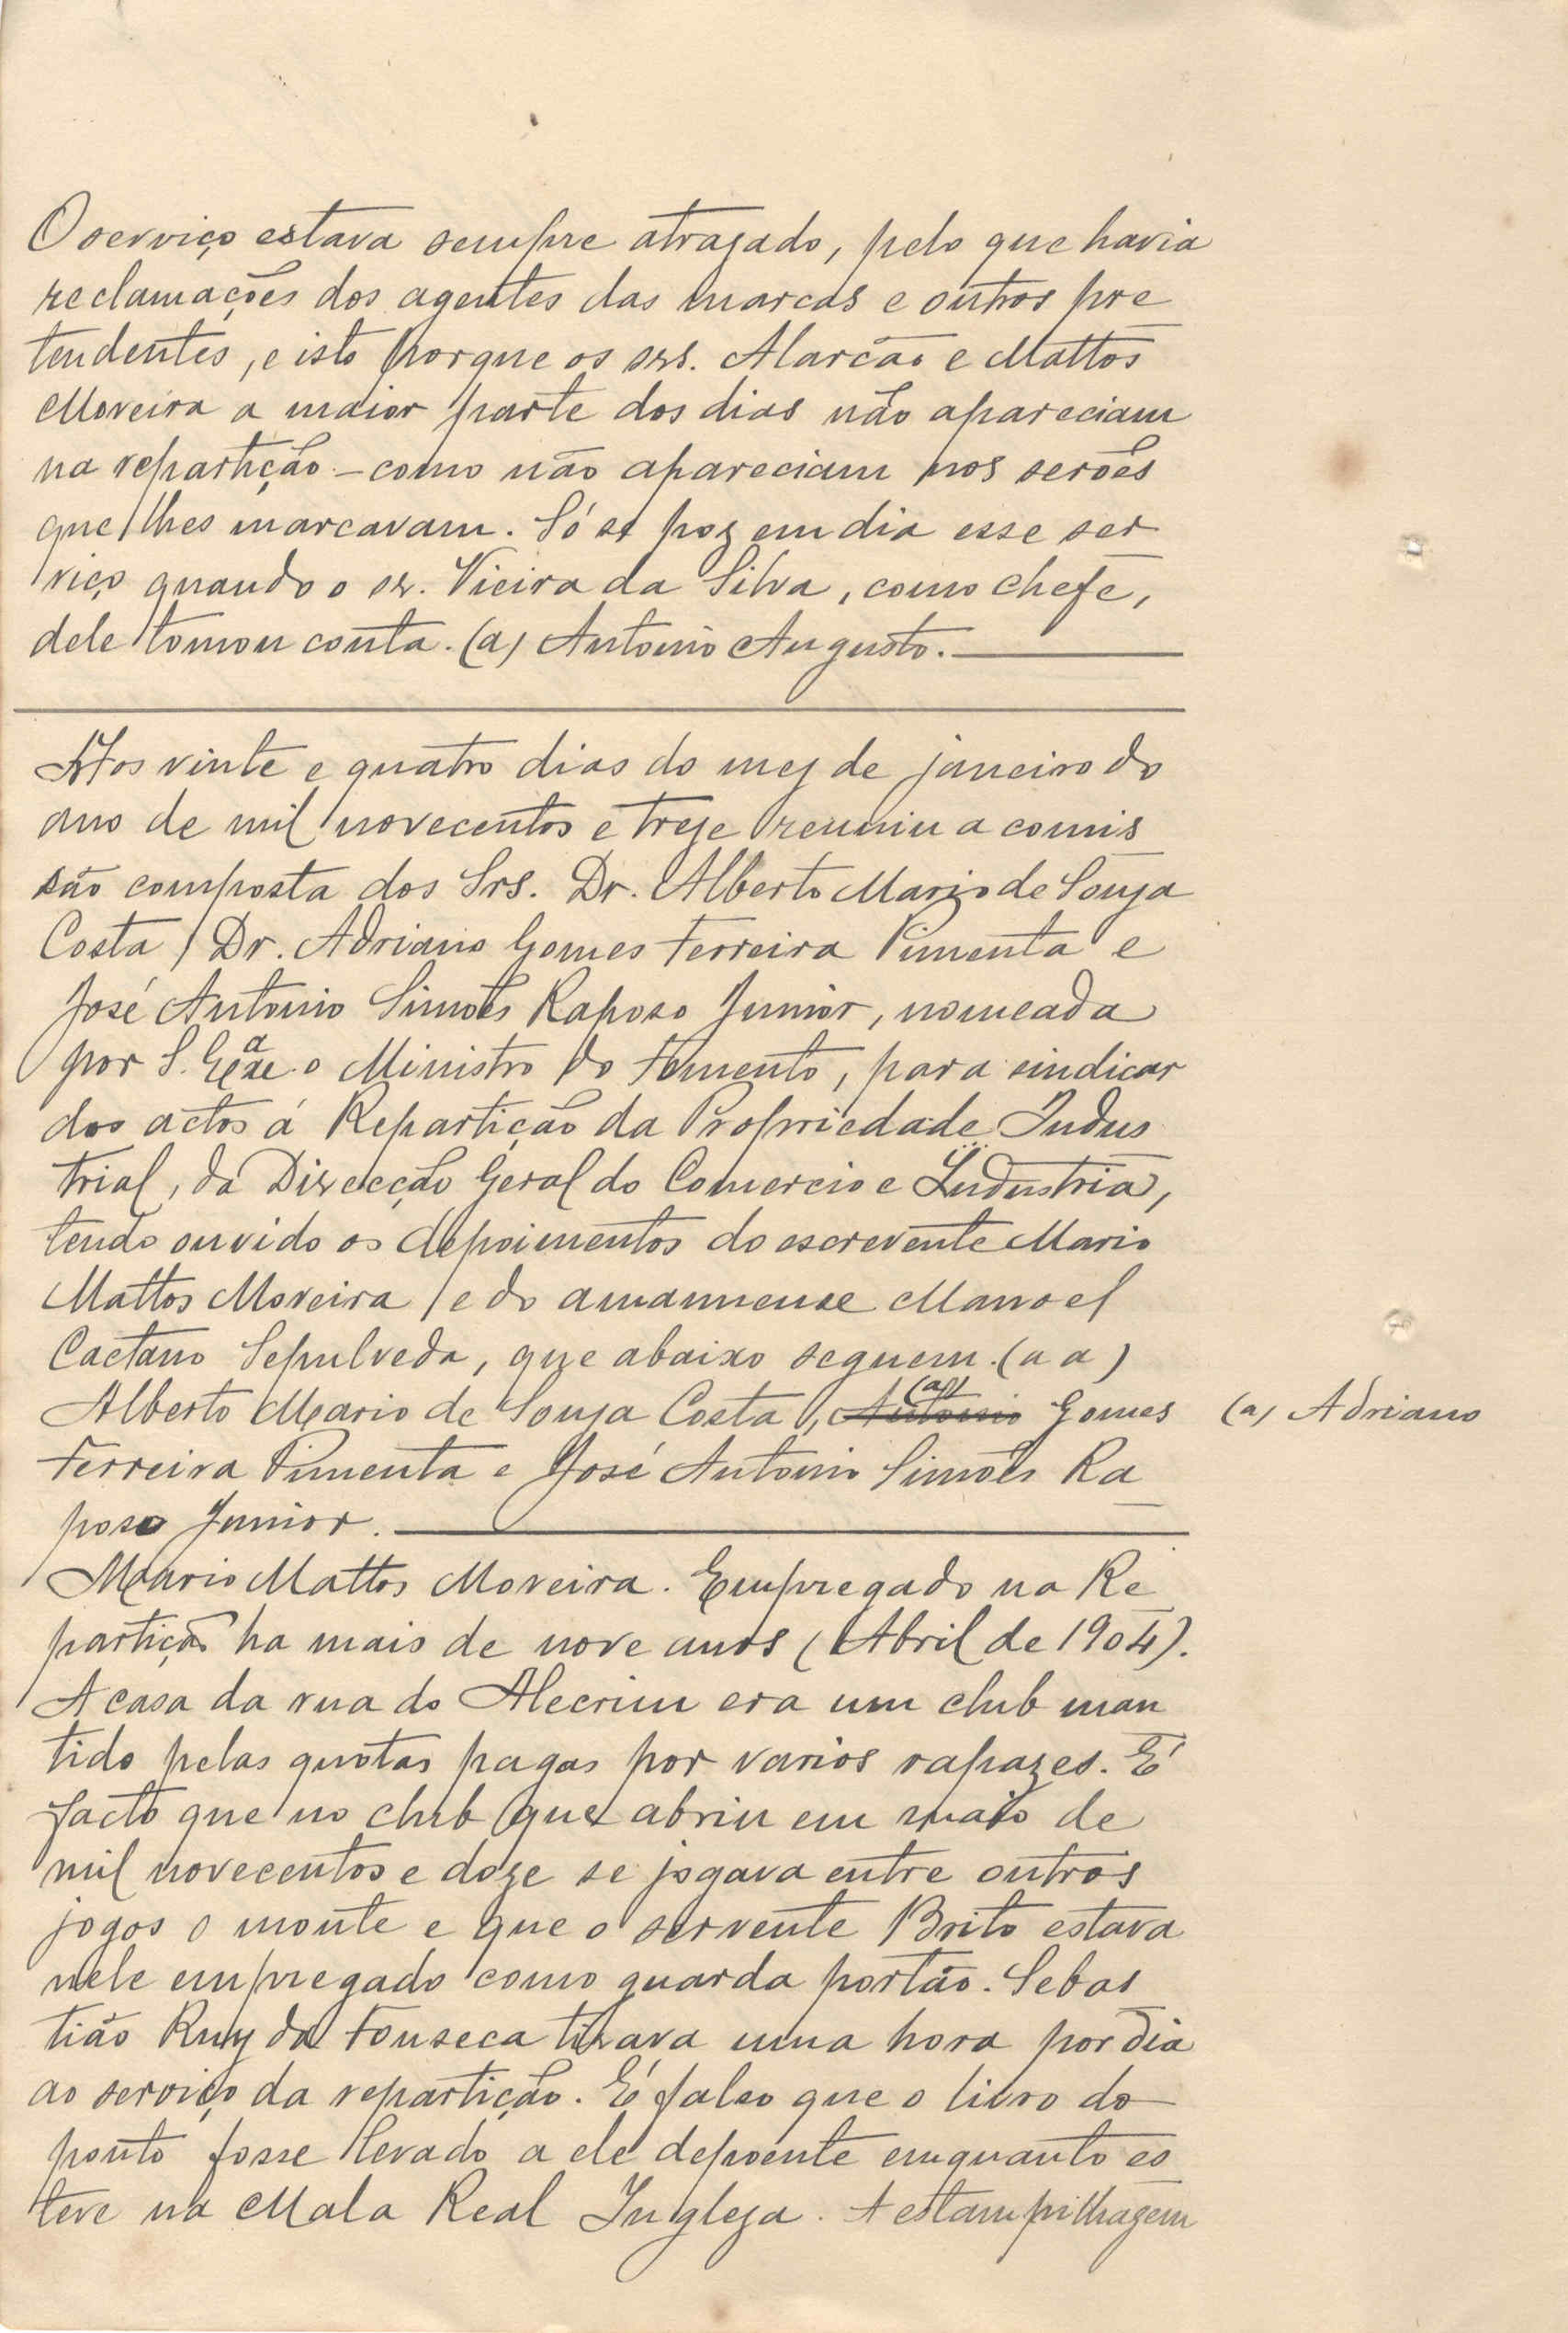 O serviço estava sempre atrazado, pelo que havia
reclamações dos agentes das marcas e outros pre
tendentes, e isto porque os srs. Alarcão e Mattos
Moreira a maior parte dos dias não apareciam
na repartição – como não apareciam nos serões
que lhes marcavam. Só se poz em dia esse ser
viço quando o sr. Vieira da Silva, como chefe,
dele tomou conta. (a) Antonio Augusto.
Aos vinte e quatro dias do mez de janeiro do
ano de mil novecentos e treze reuniu a comis
são composta dos Srs. Dr. Alberto Mario de Souza
Costa, Dr. Adriano Gomes Ferreira Pimenta e
José Antonio Simões Raposo Junior, nomeada
por S. Exa. o Ministro do Fomento, para sindicar
dos actos á Repartição da Propriedade Indus
trial, da Direcção Geral do Comercio e Industria,
tendo ouvido os depoimentos do escrevente Mario
Mattos Moreira, e do amanuense Manoel
Caetano Sepulveda, que abaixo seguem. (a a)
Alberto Mario de Souza Costa, Antonio (a) Gomes (a) Adriano
Ferreira Pimenta e José Antonio Simões Ra
poso Junior.
Mario Mattos Moreira. Empregado na Re
partição ha mais de nove anos (Abril de 1904).
A casa da rua do Alecrim era um club man
tido pelas quotas pagas por varios rapazes. É
facto que no club que abriu em maio de
mil novecentos e doze se jogava entre outros
jogos o monte e que o servente Brito estava
nele empregado como guarda portão. Sebas
tião Ruy da Fonseca tirava uma hora por dia
ao serviço da repartição. É falso que o livro do
ponto fosse levado a ele depoente emquanto es
teve na Mala Real Ingleza. A estampilhagem